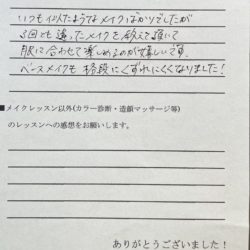 いつも似たようなメイクばかりでしたが
3回とも違ったメイクを教えて頂いて
服に合わせて楽しめるのが嬉しいです。
ベースメイクも格段にくずれにくくなりました！
■メイクレッスン以外(カラー診断・造顔マッサージ等)
のレッスンへの感想をお願いします。
ありがとうございました！